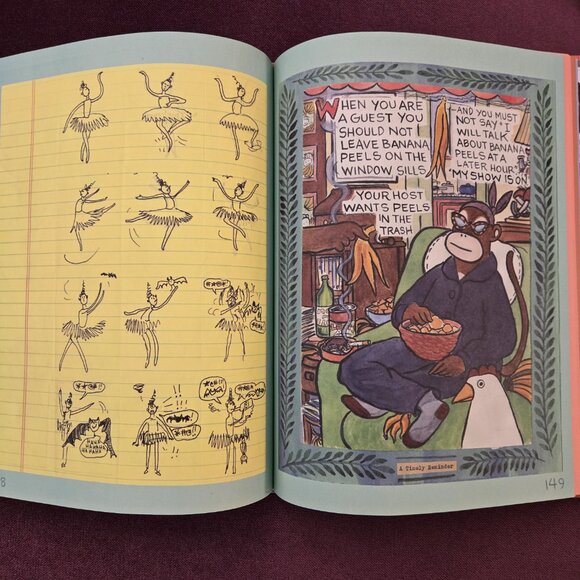 *☆@*!
HAHA
HAHAHA
HA HAHA
8
WHEN YOU ARE
A GUEST YOU
SHOULD NOT
LEAVE BANANA
PEELS ON THE
WINDOW SILLS.
AND YOU MUST
NOT SAY "I
WILL TALK
ABOUT BANANA
PEELS AT A
LATER HOUR."
"MY SHOW IS ON"
YOUR HOST
WANTS PEELS
IN THE
TRASH
A Timely Reminder
149